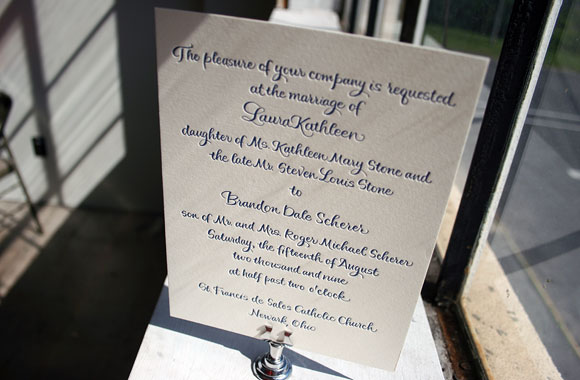 The pleasure of your company is requested
at the marriage of
Laura Kathleen
daughter of Ms. Kathleen Mary Stone and
the late Mr. Steven Louis Stone
to
Brandon Dale Scherer
son of Mr. and Mrs. Roger Michael Scherer
Saturday, the fifteenth of August
two thousand and nine
at half past two o'clock
St. Francis de Sales Catholic Church
Newark, Ohio